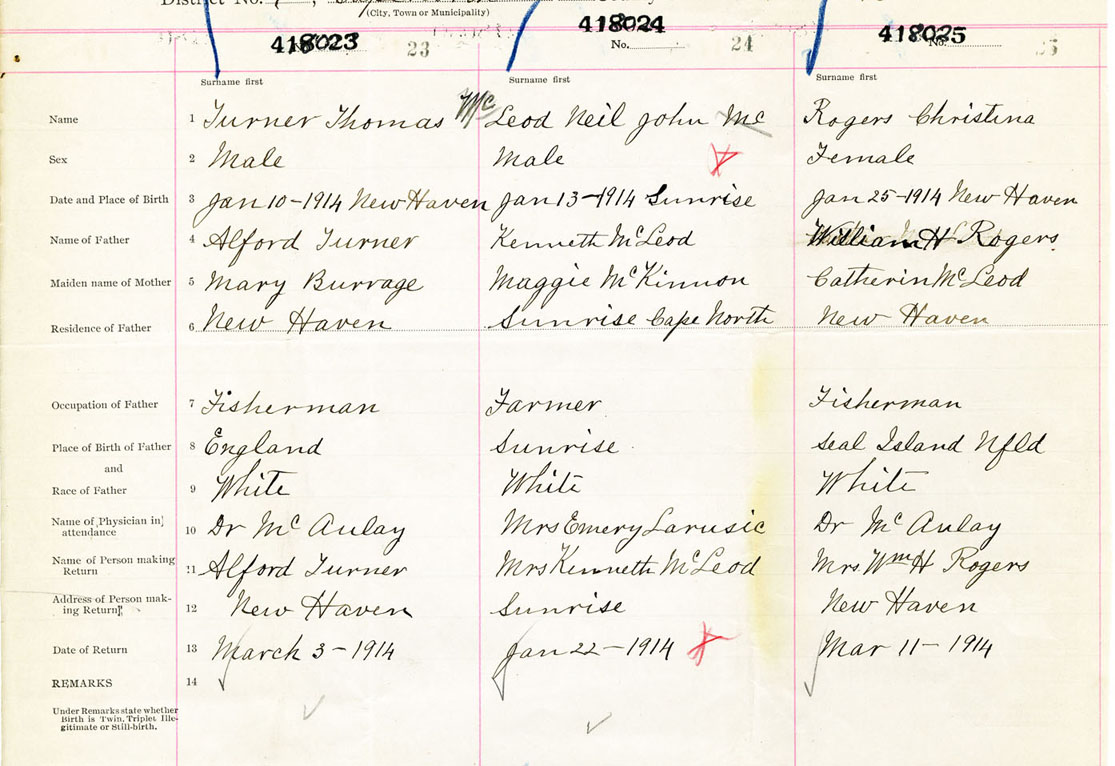 District No.
(City, Town or Municipality)
418023 23
418024 No. 24
418025 No. 25
Surname first Surname first Surname first
Name 1 Turner Thomas Mc Leod Neil John Mc Rogers Christina
Sex 2 Male Male Female
Date and Place of Birth 3 Jan 10-1914 New Haven Jan 13-1914 Sunrise Jan 25-1914 New Haven
Name of Father 4 Alford Turner Kenneth McLeod William H Rogers
Maiden name of Mother 5 Mary Burrage Maggie McKinnon Catherin McLeod
Residence of Father 6 New Haven Sunrise Cape North New Haven
Occupation of Father 7 Fisherman Farmer Fisherman
Place of Birth of Father 8 England Sunrise Seal Island Nfld
and
Race of Father 9 White White White
Name of Physician in attendance 10 Dr McAulay Mrs Emery Larusic Dr McAulay
Name of Person making Return 11 Alford Turner Mrs Kenneth McLeod Mrs Wm H Rogers
Address of Person making Return 12 New Haven Sunrise New Haven
Date of Return 13 March 3-1914 Jan 22-1914 Mar 11-1914
REMARKS 14
Under Remarks state whether
Birth is Twin, Triplet Ille-
gitimate or Still-birth.